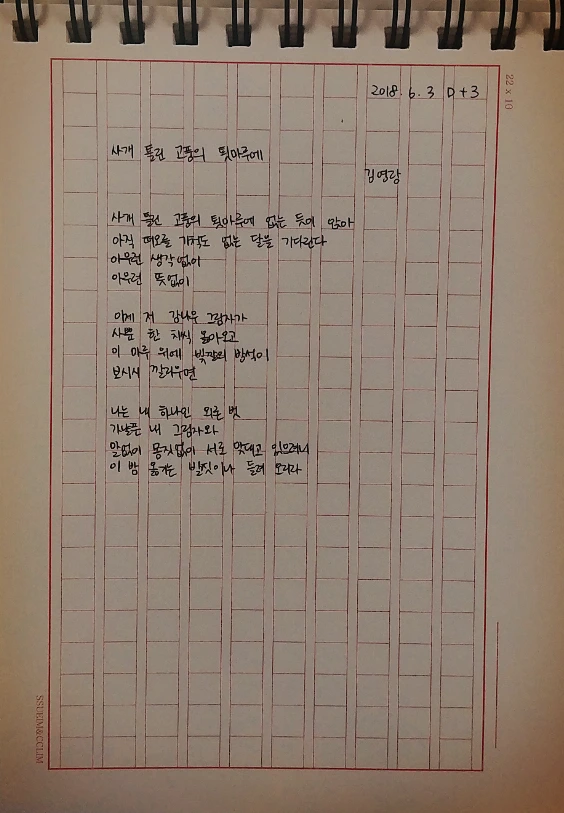 2018. 6. 3 D+3
22 x 10
사개 틀린 고풍의 툇마루에
김영랑
사개 틀린 고풍의 툇마루에 없는 듯이 앉아
아직 떠오를 기척도 없는 달을 기다린다
아무런 생각없이
아무런 뜻없이
이제 저 감나무 그림자가
사뿐 한 치씩 옮아오고
이 마루 위에 빛깔의 방석이
보시시 깔리우면
나는 내 하나인 외론 벗
가냘픈 내 그림자와
말없이 몸짓없이 서로 맞대고 있으려니
이 밤 옮기는 발짓이나 들려 오리라